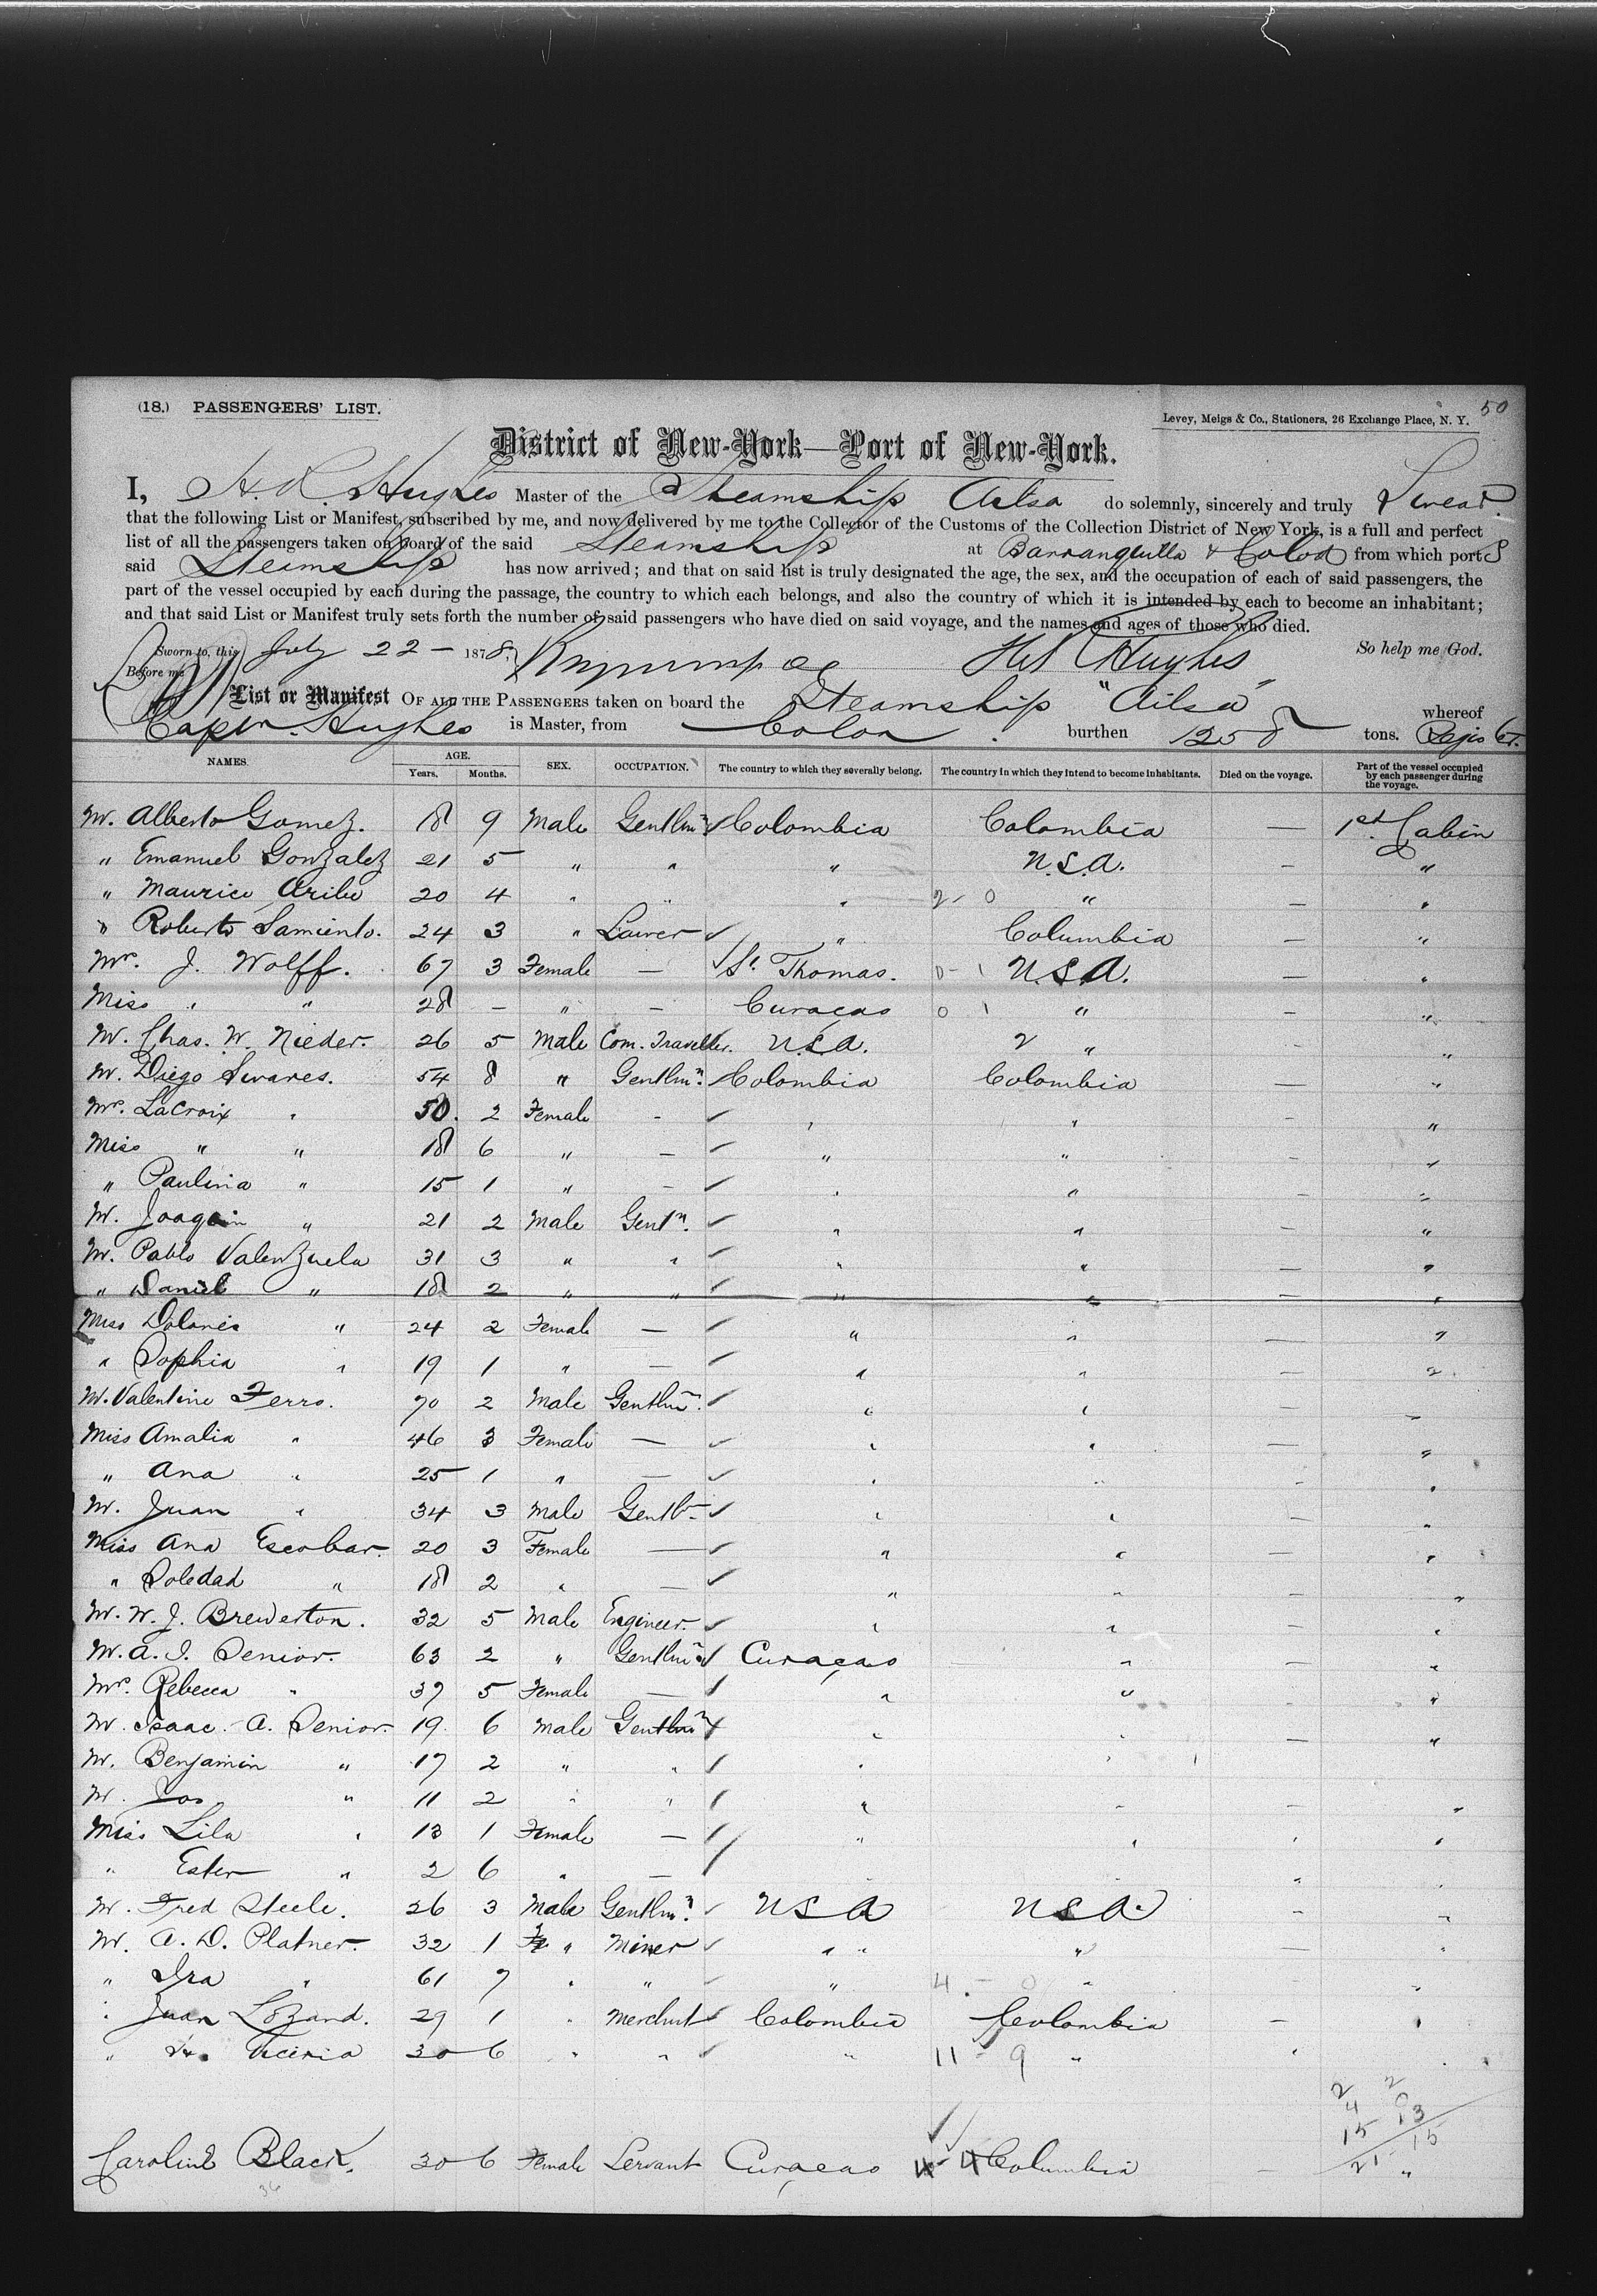 50
(18.) PASSENGERS' LIST.
Levey, Meigs & Co., Stationers, 26 Exchange Place, N. Y.
District of New-York—Port of New-York.
I, Hughes Master of the Steamship Ailsa do solemnly, sincerely and truly Swear.
that the following List or Manifest, subscribed by me, and now delivered by me to the Collector of the Customs of the Collection District of New York, is a full and perfect
list of all the passengers taken on board of the said Steamship at Barranquilla & Colon from which port S
said Steamship has now arrived; and that on said list is truly designated the age, the sex, and the occupation of each of said passengers, the
part of the vessel occupied by each during the passage, the country to which each belongs, and also the country of which it is intended by each to become an inhabitant;
and that said List or Manifest truly sets forth the number of said passengers who have died on said voyage, and the names and ages of those who died.
Sworn to, this July 22 - 1878, Hughes So help me God.
Before me
List or Manifest OF ALL THE PASSENGERS taken on board the Steamship "Ailsa" whereof
Captn. Hughes is Master, from Colon burthen 1258 tons. Register.
NAMES. AGE. Years. Months. SEX. OCCUPATION. The country to which they severally belong. The country in which they intend to become inhabitants. Died on the voyage. Part of the vessel occupied by each passenger during the voyage.
Mr. Alberto Gomez. 18 9 Male Gentlmn Colombia Colombia — 1st Cabin
" Emanuel Gonzalez 21 5 " " " U.S.A. — "
" Maurice Uribe 20 4 " " " 2 - 0 " — "
" Roberto Samiento. 24 3 " Lawer " Columbia — "
Mrs. J. Wolff. 67 3 Female — St. Thomas. 0 - 1 U.S.A. — "
Miss " " 28 — " — Curacao 0 1 " — "
Mr. Chas. W. Nieder. 26 5 Male Com. Traveller. U.S.A. 2 " - "
Mr. Diego Swares. 54 8 " Gentlmn. Colombia Colombia — "
Mrs. LaCroix " 50. 2 Female - " " - "
Miss " " 18 6 " — " " - "
" Paulina " 15 1 " — " " - "
Mr. Joaquin " 21 2 Male Gentn. " " — "
Mr. Pablo Valenzuela 31 3 " " " " — "
" Daniel " 18 2 " " " " — "
Miss Dolores " 24 2 Female — " " — "
" Sophia " 19 1 " — " " — "
Mr. Valentine Ferro. 70 2 Male Gentlmn. " " — "
Miss Amalia " 46 3 Female — " " — "
" Ana " 25 1 " — " " - "
Mr. Juan " 34 3 Male Gentl " " — "
Miss Ana Escobar. 20 3 Female — " " — "
" Soledad " 18 2 " — " " — "
Mr. W. J. Brewerton. 32 5 Male Engineer. " " — "
Mr. A. I. Senior. 63 2 " Gentlmn Curaçao " — "
Mrs. Rebecca " 37 5 Female — " " — "
Mr. Isaac. A. Senior. 19. 6 Male Gentlmn " " — "
Mr. Benjamin " 17 2 " " " "
Mr. Jos " 11 2 " " " " — "
Miss Lila " 13 1 Female — " " " "
" Ester " 2 6 " — " "
Mr. Fred Steele. 26 3 Male Gentlmn. U S A U S A. - "
Mr. A. D. Platner. 32 1 " Miner " " " — "
" Ira " 61 7 " " " 4 - 0 " - "
" Juan Lozano. 29 1 " Merchnt Colombia Colombia — "
" 30 6 " " " 11 - 9 " " "
2 2
4 0
15 13
21 15
Caroline Black. 30 6 Female Servant Curaçao Columbia — "
36